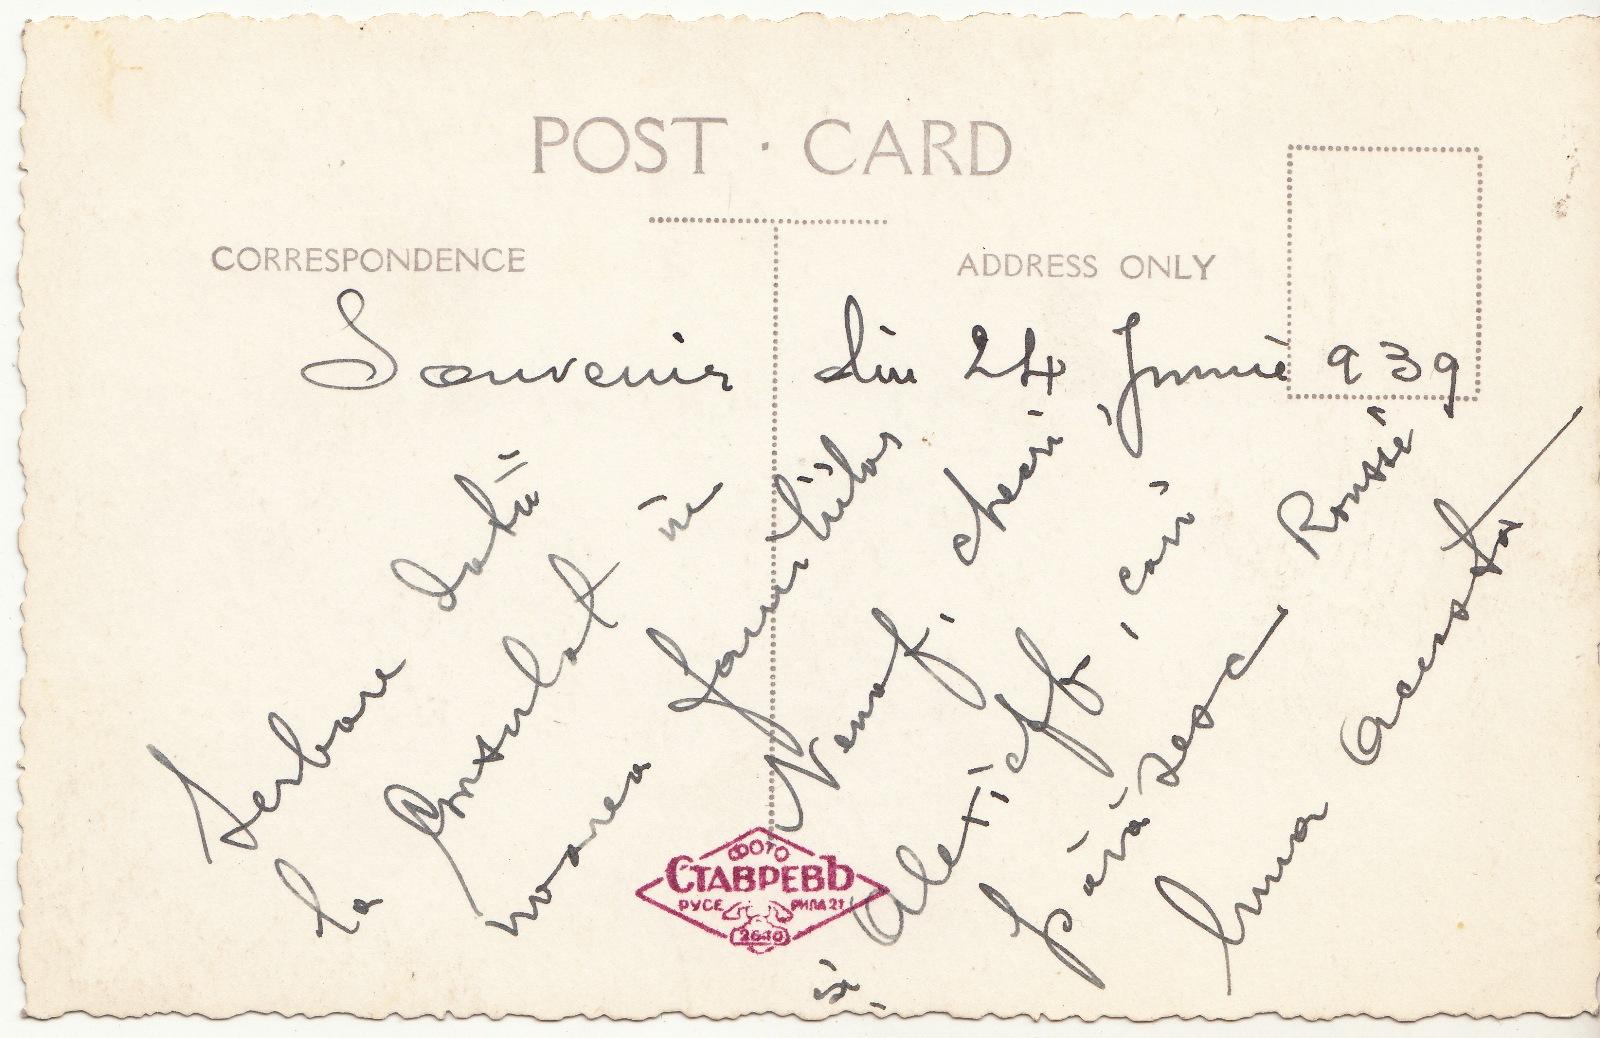 POST · CARD
CORRESPONDENCE
ADDRESS ONLY
Souvenir din 24 Junie 939
Serbare dată
la Consulat în
onorea familiilor
Nenof, cheri
și Alexieff, cari
părăsesc Roussé
luna acesta
ФОТО
СТАВРЕВЪ
РУСЕ РИЛА 21
2640